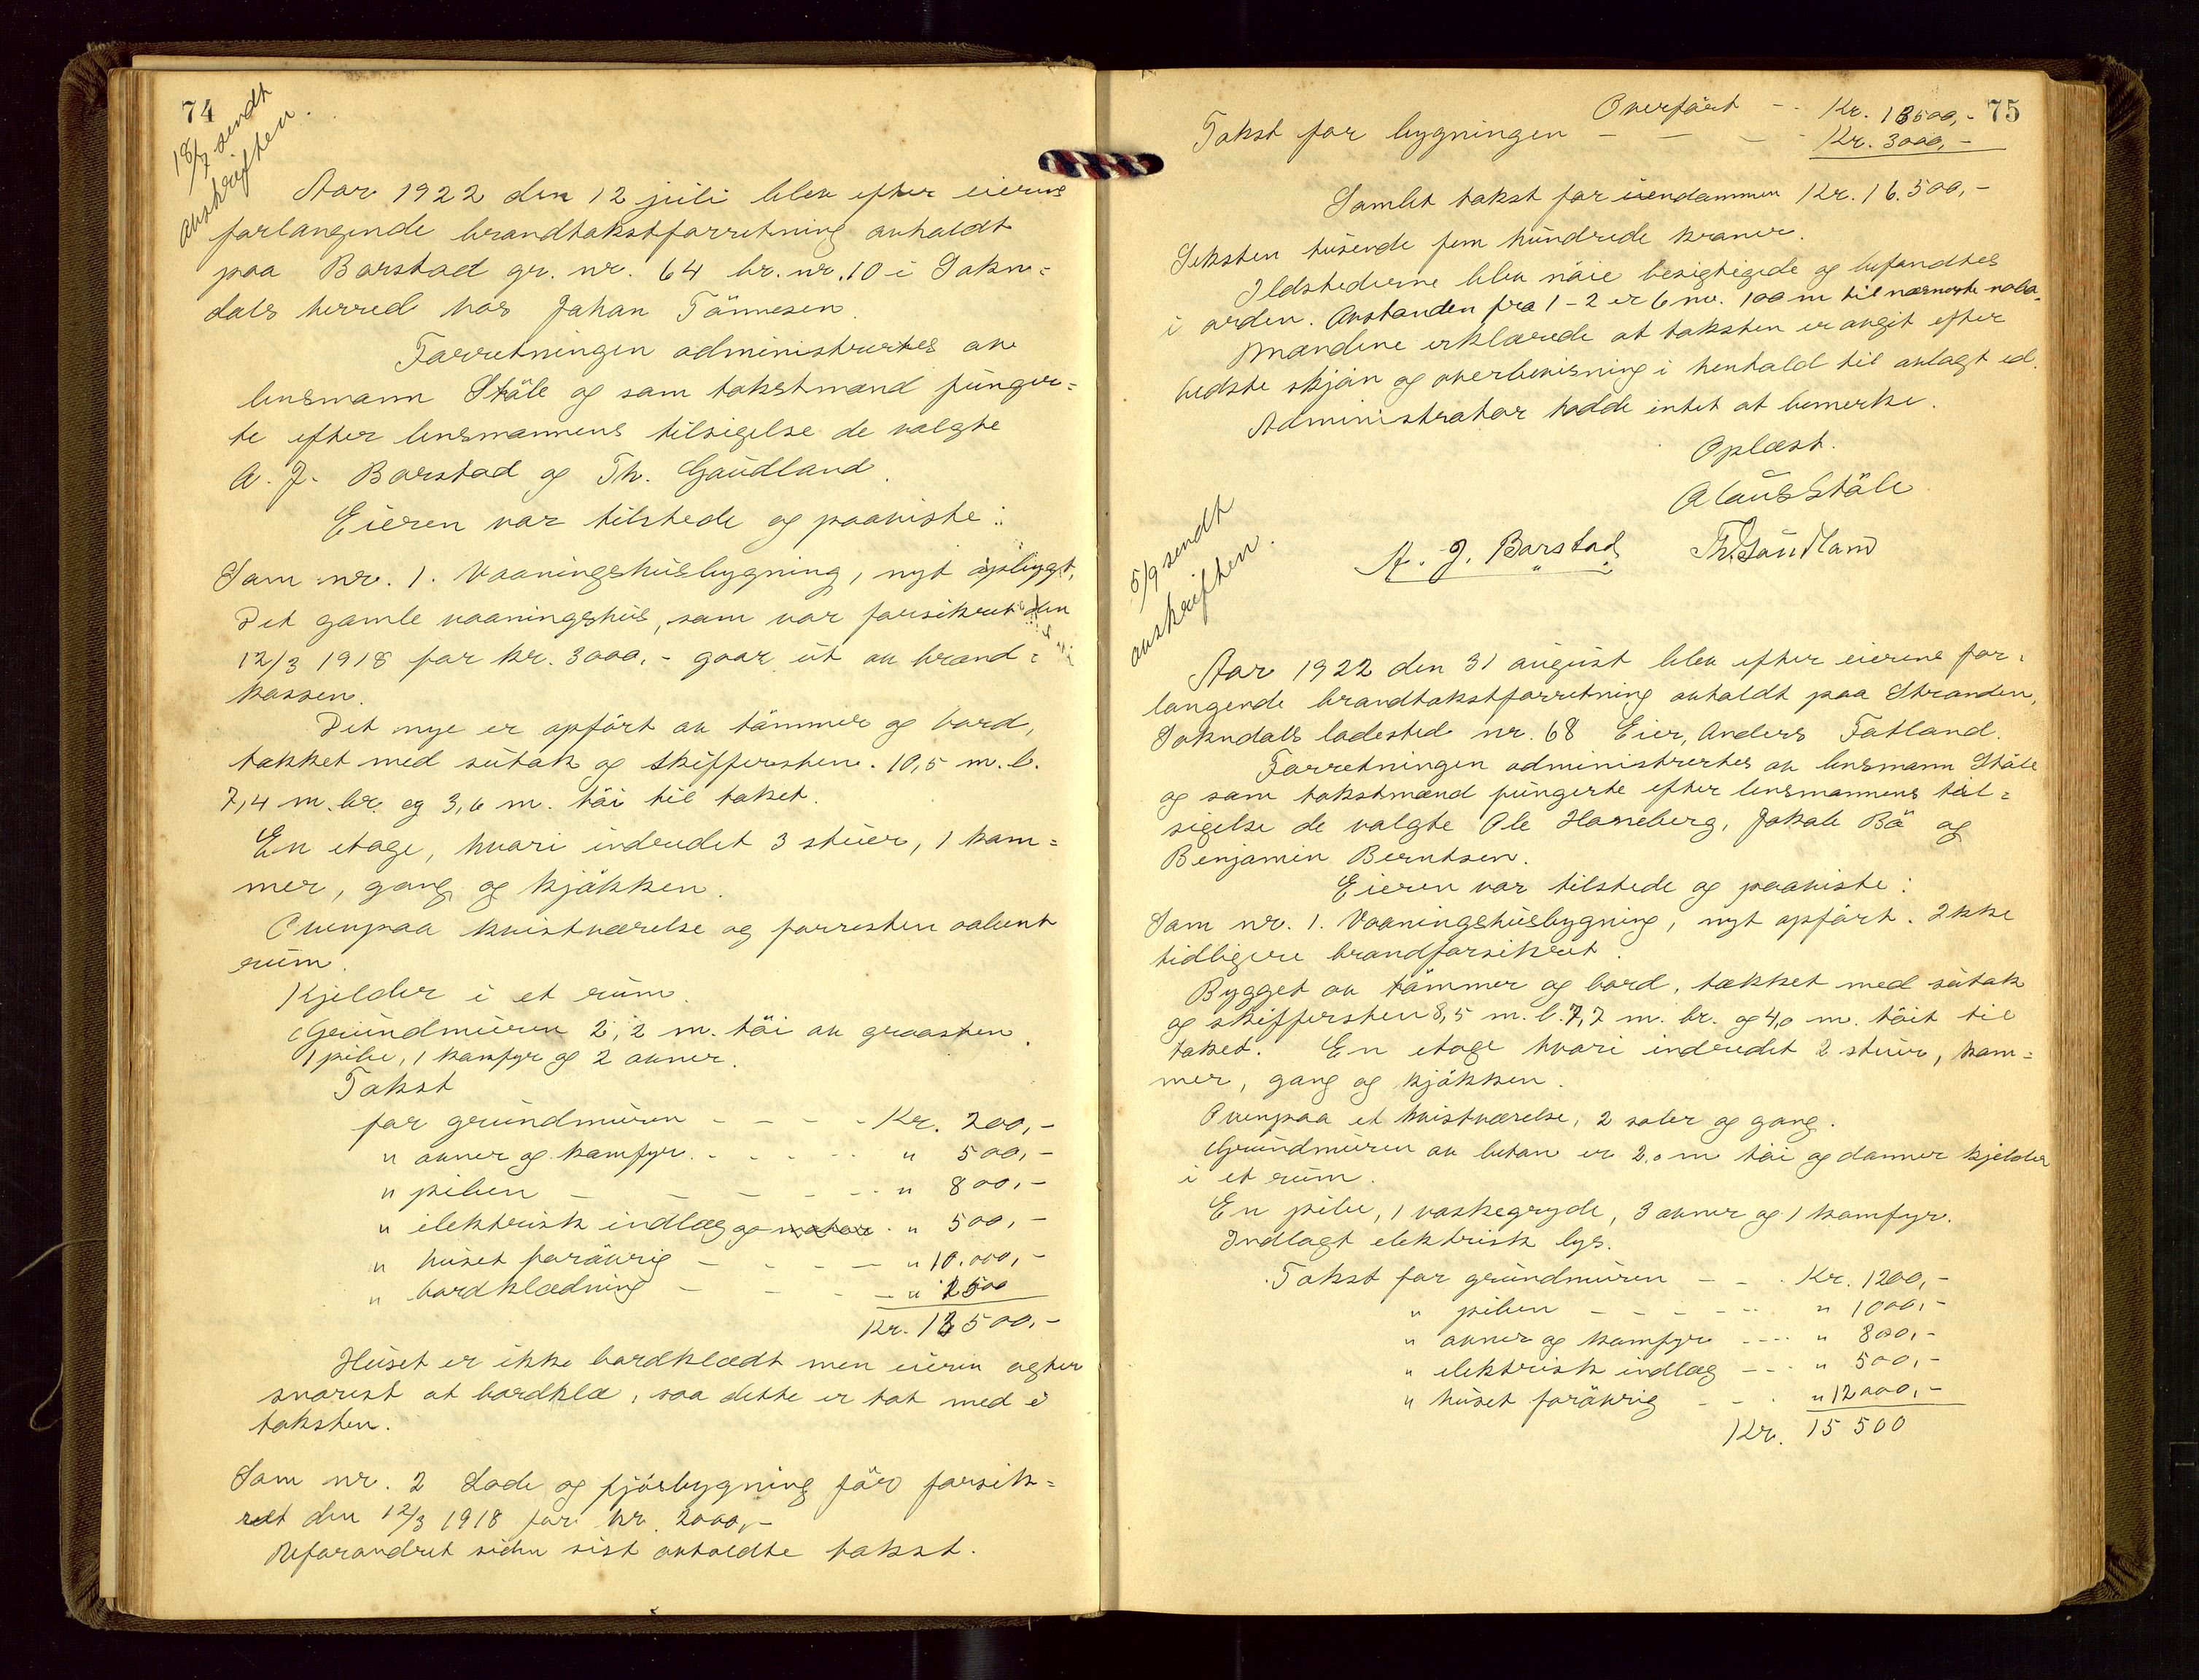 74
18/7 sendt
avskriften.
Aar 1922 den 12 juli blev efter eierens
forlangende brandtakstforretning avholdt
paa Barstad gr. nr. 64 br. nr. 10 i Sokn=
dals herred hos Johan Tönnesen.
Forretningen administrertes av
lensmann Ståle og som takstmænd funger=
te efter lensmannens tilsigelse de valgte
A. J. Barstad og Th. Gaudland.
Eieren var tilstede og paaviste:
Som nr. 1. Vaaningshusbygning, nyt opbygt.
Det gamle vaaningshus, som var forsikret den
12/3 1918 for kr. 3000,- gaar ut av brand=
kassen.
Det nye er opfört av tömmer og bord,
tækket med sutak og skiffersten. 10,5 m. l.
7,4 m. br. og 3,6 m. höi til taket.
En etage, hvori indredet 3 stuer, 1 kam=
mer, gang og kjökken.
Ovenpaa kvistværelse og forresten aabent
rum.
Kjelder i et rum.
Grundmuren 2,2 m. höi av graasten.
1 pibe, 1 komfyr og 2 ovner.
Takst
for grundmuren - - - - Kr. 200,-
" ovner og komfyr - - - - " 500,-
" piben - - - - - " 800,-
" elektrisk indlæg og motor " 500,-
" huset forövrig - - - - " 10.000,-
" bordklædning - - - - " 1500
Kr. 13500,-
Huset er ikke bordklædt men eieren agter
snarest at bordklæ, saa dette er tat med i
taksten.
Som nr. 2 Lade og fjösbygning för forsik=
ret den 12/3 1918 for kr. 2000,-
Uforandret siden sist avholdte takst.
75
Overfört - - Kr. 13500,-
Takst for bygningen - - - - Kr. 3000,-
Samlet takst for eiendommen Kr. 16.500,-
Seksten tusende fem hundrede kroner.
Ildstederne blev nöie besigtigede og befandtes
i orden. Avstanden fra 1-2 er 6 m. 100 m til nærmeste nabo.
Mændene erklærede at taksten er avgit efter
bedste skjön og overbevisning i henhold til avlagt ed.
Administrator hadde intet at bemerke.
Oplæst.
Olaus Ståle
A. J. Barstad Th. Gaudland
5/9 sendt
avskriften.
Aar 1922 den 31 august blev efter eierens for=
langende brandtakstforretning avholdt paa Stranden,
Sokndals ladested nr. 68 Eier, Anders Fatland.
Forretningen administrertes av lensmann Ståle
og som takstmænd fungerte efter lensmannens til=
sigelse de valgte Ole Haneberg, Jakob Bö og
Benjamin Berntsen.
Eieren var tilstede og paaviste:
Som nr. 1. Vaaningshusbygning, nyt opfört. Ikke
tidligere brandforsikret.
Bygget av tömmer og bord, tækket med sutak
og skiffersten 8,5 m. l. 7,7 m. br. og 4,0 m. höit til
taket. En etage hvori indredet 2 stuer, kam=
mer, gang og kjökken.
Ovenpaa et kvistværelse, 2 saler og gang.
Grundmuren av beton er 2,0 m höi og danner kjelder
i et rum.
En pibe, 1 vaskegryde, 3 ovner og 1 komfyr.
Indlagt elektrisk lys.
Takst for grundmuren - - Kr. 1200,-
" piben - - - - - " 1000,-
" ovner og komfyr - - - - " 800,-
" elektrisk indlæg - - - " 500,-
" huset forövrig - - - " 12000,-
Kr. 15 500